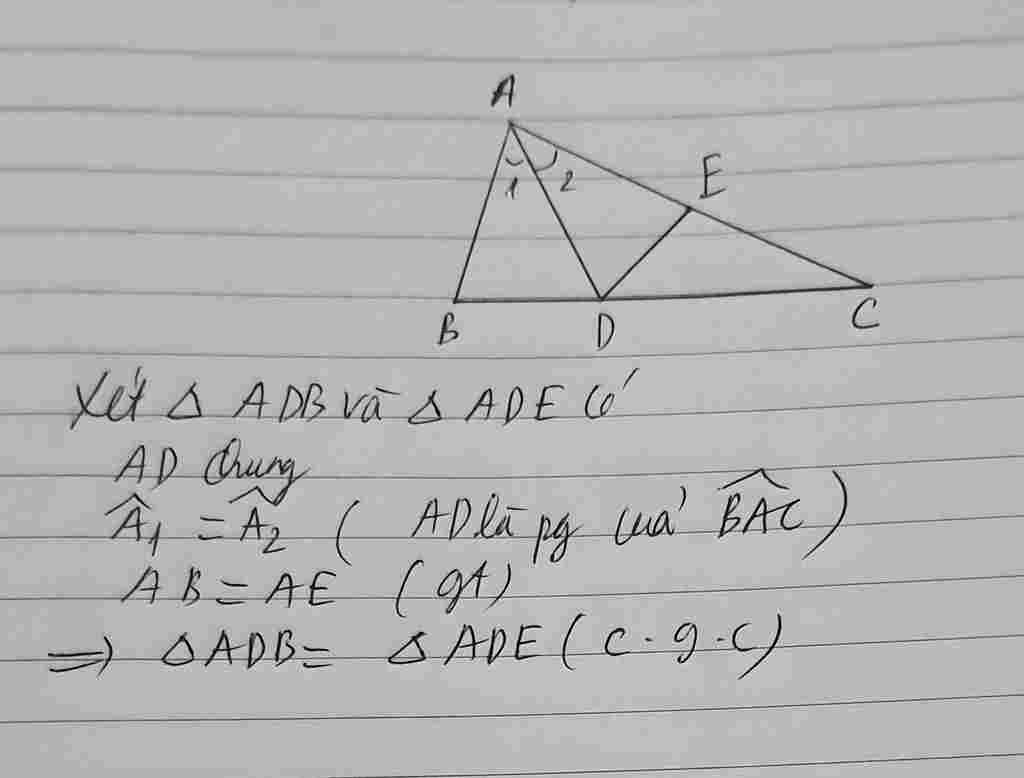 A
1 2
E
B D C
Xét Δ ADB và Δ ADE có
AD chung
Â₁ = Â₂ ( AD là pg của \widehat{BAC} )
AB = AE (gt)
=> Δ ADB = Δ ADE ( c.g.c)